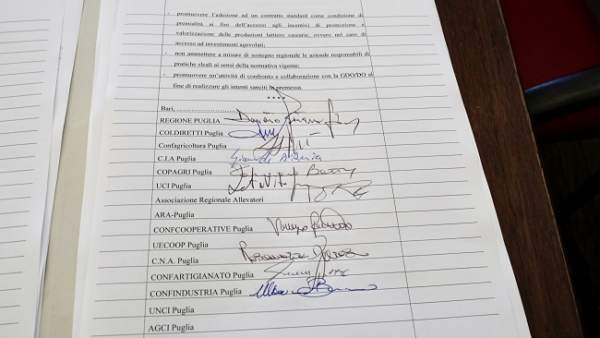 - promuovere l'adesione ad un contratto standard come condizione di
premialità ai fini dell'accesso agli incentivi di promozione e
valorizzazione delle produzioni lattiero casearie, ovvero nel caso di
accesso ad investimenti agevolati;
- non ammettere a misure di sostegno regionale le aziende responsabili di
pratiche sleali ai sensi della normativa vigente;
- promuovere un'attività di confronto e collaborazione con la GDO/DO al
fine di realizzare gli intenti sanciti in premessa.
****
Bari,
REGIONE PUGLIA
COLDIRETTI Puglia
Confagricoltura Puglia
C.I.A Puglia
COPAGRI Puglia
UCI Puglia
Associazione Regionale Allevatori
ARA-Puglia
CONFCOOPERATIVE Puglia
UECOOP Puglia
C.N.A. Puglia
CONFARTIGIANATO Puglia
CONFINDUSTRIA Puglia
UNCI Puglia
AGCI Puglia